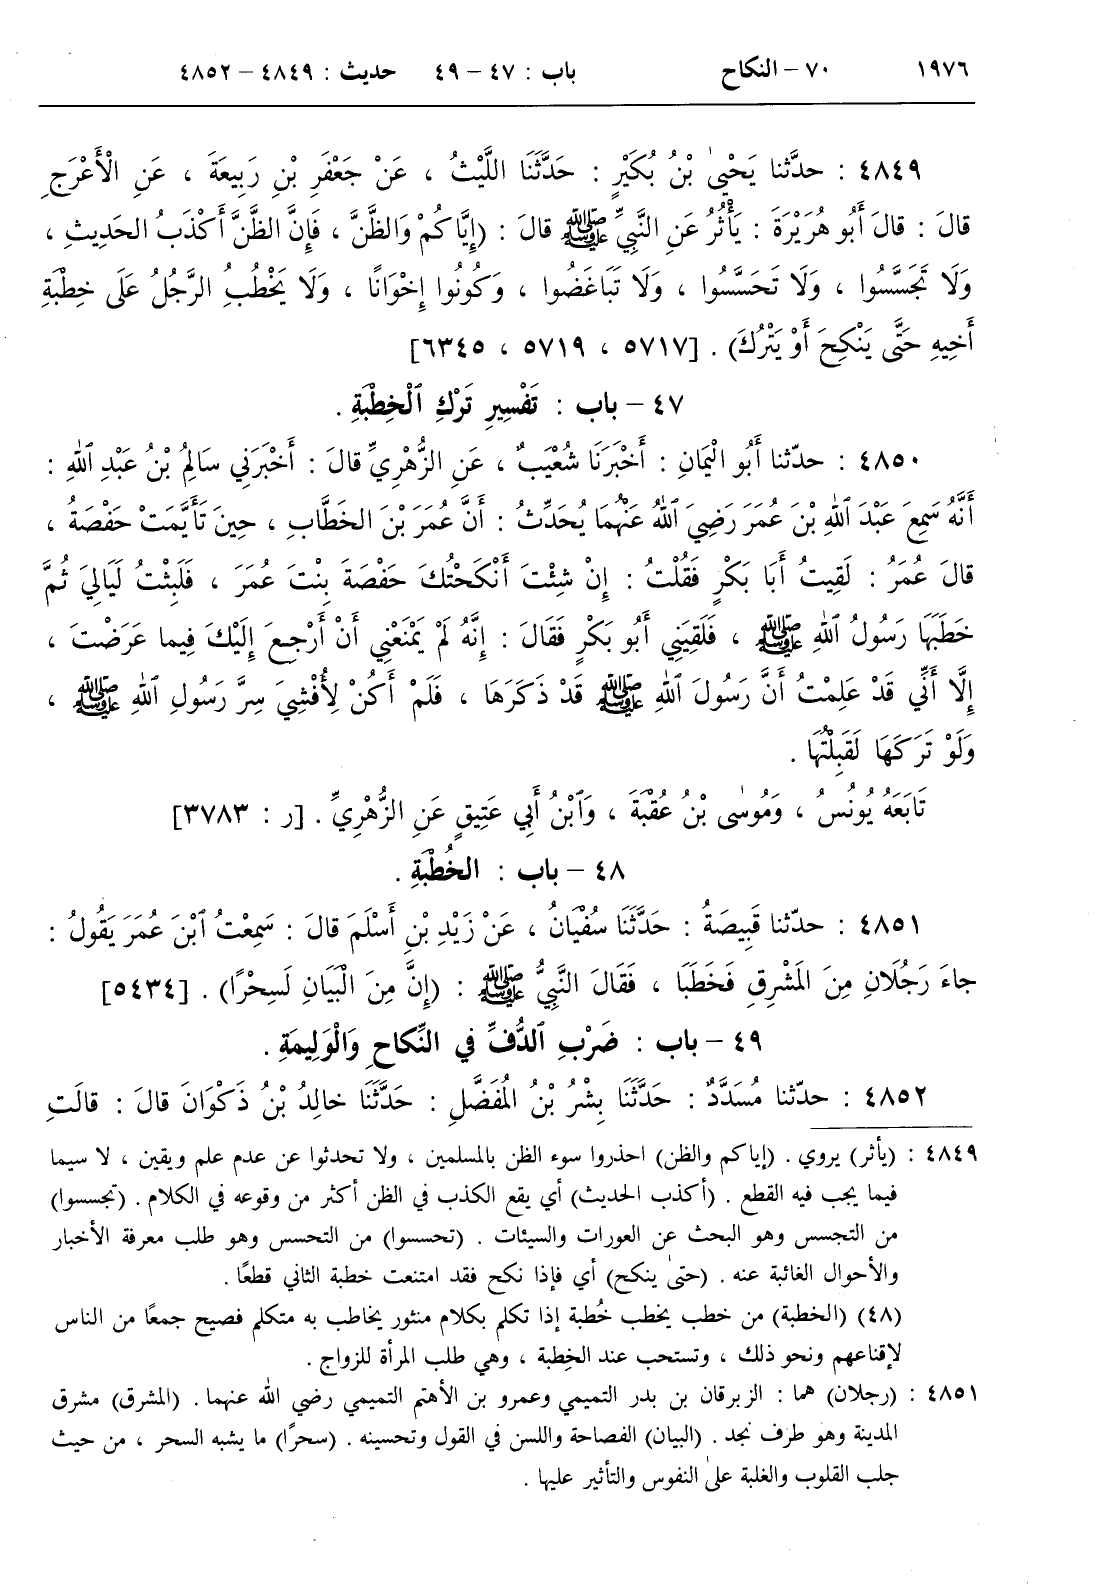 ١٩٧٦ ٧٠ – النكاح باب : ٤٧ – ٤٩ حديث : ٤٨٤٩ – ٤٨٥٢
٤٨٤٩ : حدَّثنا يَحْيىٰ بْنُ بُكَيْرٍ : حَدَّثَنَا اللَّيْثُ ، عَنْ جَعْفَرِ بْنِ رَبِيعَةَ ، عَنِ الْأَعْرَجِ
قالَ : قالَ أَبُو هُرَيْرَةَ : يَأْثُرُ عَنِ النَّبِيِّ ﷺ قالَ : (إِيَّاكُمْ وَالظَّنَّ ، فَإِنَّ الظَّنَّ أَكْذَبُ الحَدِيثِ ،
وَلَا تَجَسَّسُوا ، وَلَا تَحَسَّسُوا ، وَلَا تَبَاغَضُوا ، وَكُونُوا إِخْوَانًا ، وَلَا يَخْطُبُ الرَّجُلُ عَلَى خِطْبَةِ
أَخِيهِ حَتَّى يَنْكِحَ أَوْ يَتْرُكَ) . [٥٧١٧ ، ٥٧١٩ ، ٦٣٤٥]
٤٧ – باب : تَفْسِيرِ تَرْكِ ٱلْخِطْبَةِ .
٤٨٥٠ : حدّثنا أَبُو الْيَمَانِ : أَخْبَرَنَا شُعَيْبٌ ، عَنِ الزُّهْرِيِّ قالَ : أَخْبَرَنِي سَالِمُ بْنُ عَبْدِ ٱللهِ :
أَنَّهُ سَمِعَ عَبْدَ ٱللهِ بْنَ عُمَرَ رَضِيَ ٱللهُ عَنْهُمَا يُحَدِّثُ : أَنَّ عُمَرَ بْنَ الخَطَّابِ ، حِينَ تَأَيَّمَتْ حَفْصَةُ ،
قالَ عُمَرُ : لَقِيتُ أَبَا بَكْرٍ فَقُلْتُ : إِنْ شِئْتَ أَنْكَحْتُكَ حَفْصَةَ بِنْتَ عُمَرَ ، فَلَبِثْتُ لَيَالِيَ ثُمَّ
خَطَبَهَا رَسُولُ ٱللهِ ﷺ ، فَلَقِيَنِي أَبُو بَكْرٍ فَقَالَ : إِنَّهُ لَمْ يَمْنَعْنِي أَنْ أَرْجِعَ إِلَيْكَ فِيما عَرَضْتَ ،
إِلَّا أَنِّي قَدْ عَلِمْتُ أَنَّ رَسُولَ ٱللهِ ﷺ قَدْ ذَكَرَهَا ، فَلَمْ أَكُنْ لِأُفْشِيَ سِرَّ رَسُولِ ٱللهِ ﷺ ،
وَلَوْ تَرَكَهَا لَقَبِلْتُهَا .
تَابَعَهُ يُونُسُ ، وَمُوسٰى بْنُ عُقْبَةَ ، وَٱبْنُ أَبِي عَتِيقٍ عَنِ الزُّهْرِيِّ . [ر : ٣٧٨٣]
٤٨ – باب : الخُطْبَةِ .
٤٨٥١ : حدّثنا قَبِيصَةُ : حَدَّثَنَا سُفْيَانُ ، عَنْ زَيْدِ بْنِ أَسْلَمَ قالَ : سَمِعْتُ ٱبْنَ عُمَرَ يَقُولُ :
جاءَ رَجُلَانِ مِنَ المَشْرِقِ فَخَطَبَا ، فَقَالَ النَّبِيُّ ﷺ : (إِنَّ مِنَ الْبَيَانِ لَسِحْرًا) . [٥٤٣٤]
٤٩ – باب : ضَرْبِ ٱلدُّفِّ فِي النِّكاحِ وَالْوَلِيمَةِ .
٤٨٥٢ : حدّثنا مُسَدَّدٌ : حَدَّثَنَا بِشْرُ بْنُ المُفَضَّلِ : حَدَّثَنَا خالِدُ بْنُ ذَكْوَانَ قالَ : قالَتِ
٤٨٤٩ : (يأثر) يروي . (إياكم والظن) احذروا سوء الظن بالمسلمين ، ولا تحدثوا عن عدم علم ويقين ، لا سيما
فيما يجب فيه القطع . (أكذب الحديث) أي يقع الكذب في الظن أكثر من وقوعه في الكلام . (تجسسوا)
من التجسس وهو البحث عن العورات والسيئات . (تحسسوا) من التحسس وهو طلب معرفة الأخبار
والأحوال الغائبة عنه . (حتىٰ ينكح) أي فإذا نكح فقد امتنعت خطبة الثاني قطعًا .
(٤٨) (الخطبة) من خطب يخطب خُطبة إذا تكلم بكلام منثور يخاطب به متكلم فصيح جمعًا من الناس
لإقناعهم ونحو ذلك ، وتستحب عند الخِطبة ، وهي طلب المرأة للزواج .
٤٨٥١ : (رجلان) هما : الزبرقان بن بدر التميمي وعمرو بن الأهتم التميمي رضي الله عنهما . (المشرق) مشرق
المدينة وهو طرف نجد . (البيان) الفصاحة واللسن في القول وتحسينه . (سحرًا) ما يشبه السحر ، من حيث
جلب القلوب والغلبة علىٰ النفوس والتأثير عليها .